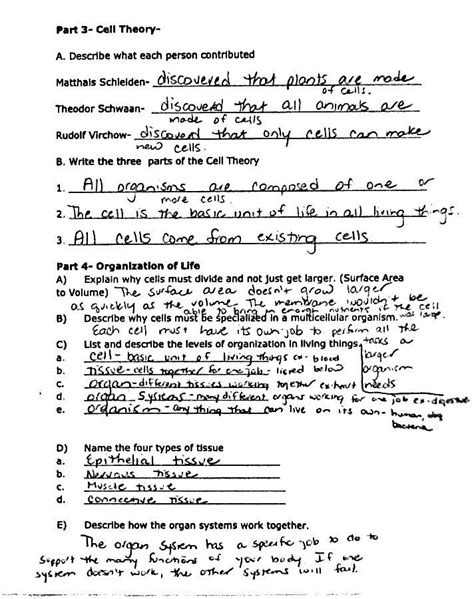 Part 3- Cell Theory-
A. Describe what each person contributed
Matthais Schleiden- discovered that plants are made
of cells.
Theodor Schwaan- discovered that all animals are
made of cells
Rudolf Virchow- discoverd that only cells can make
new cells.
B. Write the three parts of the Cell Theory
1. All organisms are composed of one or
more cells.
2. The cell is the basic unit of life in all living things.
3. All cells come from existing cells
Part 4- Organization of Life
A) Explain why cells must divide and not just get larger. (Surface Area
to Volume) The surface area doesn't grow larger
as quickly as the volume. The membrane wouldn't be
able to bring in enough nutrients if the cell
B) Describe why cells must be specialized in a multicellular organism. was large.
Each cell must have its own job to perform all the
C) List and describe the levels of organization in living things. tasks a
a. cell- basic unit of living things ex- blood larger
b. tissue- cells together for one job- listed below organism
c. organ- different tissues working together ex-heart needs
d. organ systems- many different organs working for one job ex-digestive
e. organism- any thing that can live on its own- human, dog
bacteria
D) Name the four types of tissue
a. Epithelial tissue
b. Nervous tissue
c. Muscle tissue
d. Connective tissue
E) Describe how the organ systems work together.
The organ system has a specific job to do to
support the many functions of your body If one
system doesn't work, the other systems will fail.